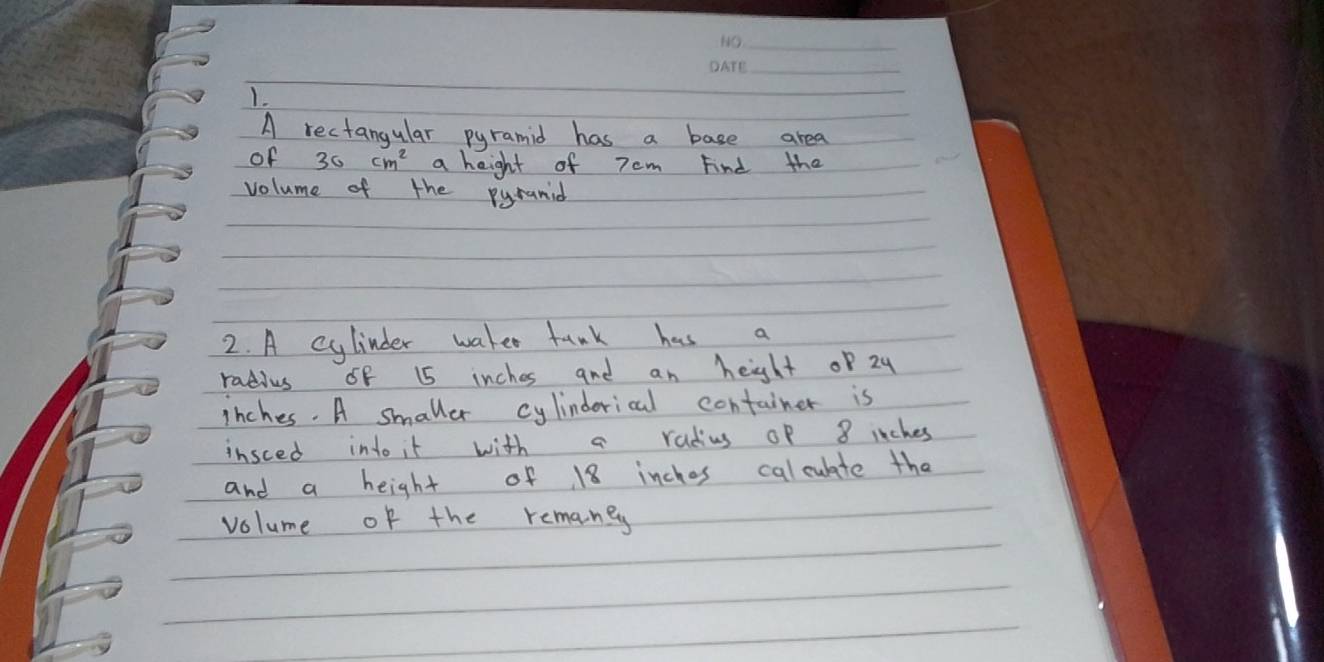 NO
DATE
1.
A rectangular pyramid has a base area
of 30 cm² a height of 7cm Find the
volume of the pyramid
2. A cylinder water tank has a
radius of 15 inches and an height of 24
inches. A smaller cylinderical container is
insced into it with a radius of 8 inches
and a height of 18 inches calculate the
volume of the remaney